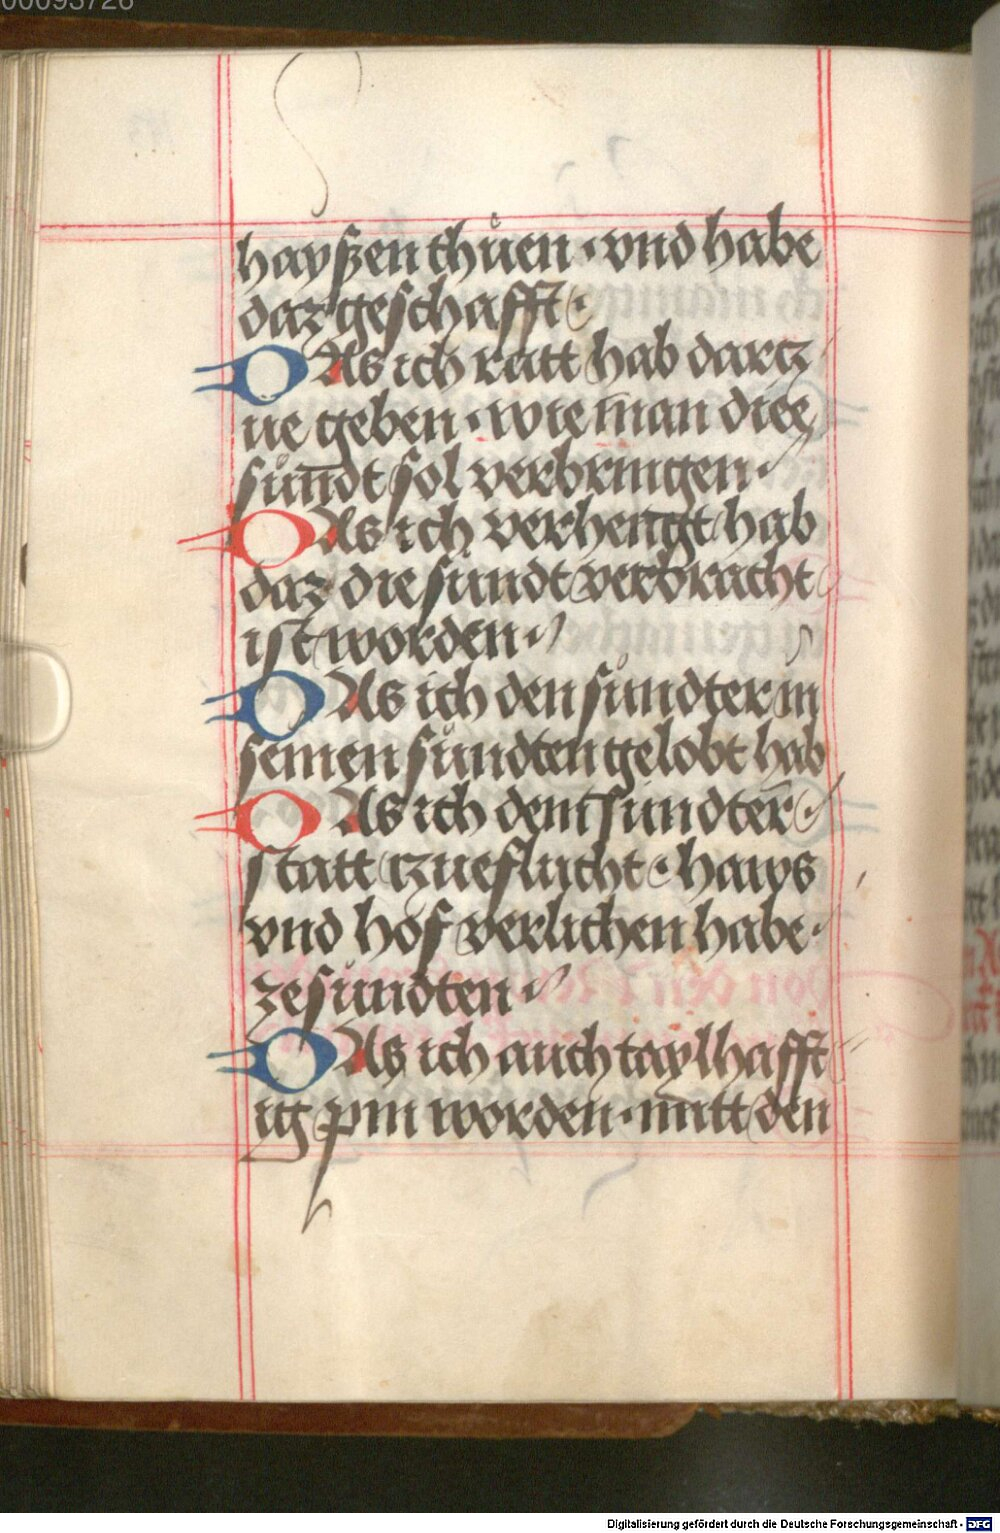 00093726
hayſzen thůen · vnd habe
daz geſchafft ·
DAs ich ratt hab darcz
ue geben · wie man diee
ſůndt ſol verbringen ·
DAs ich verhengt hab
daz die ſundt verbracht
iſt worden ·
DAs ich den ſůndter in
ſeinen ſůndten gelobt hab
DAs ich dem ſundter
ſtatt czueflucht · haws
vnd hof verlichen habe ·
ze ſůndten ·
DAs ich auch taylhafft
ig pin worden · mitt den
Digitalisierung gefördert durch die Deutsche Forschungsgemeinschaft - DFG